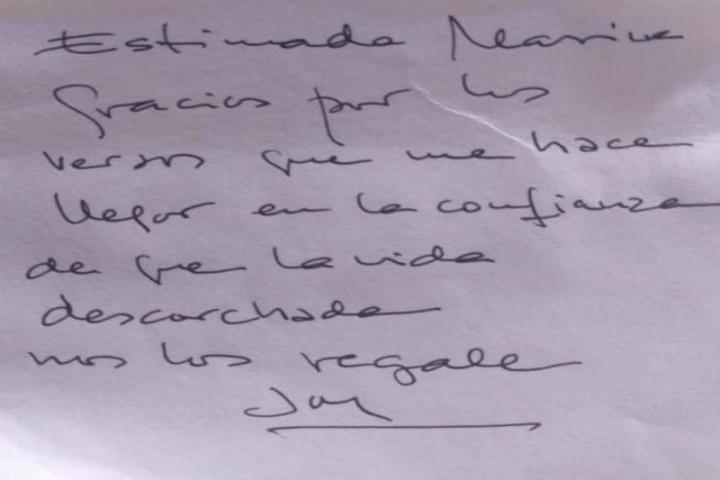 Estimada
Gracias por los
versos que me hace
llegar en la confianza
de que la vida
descorchada
nos los regale